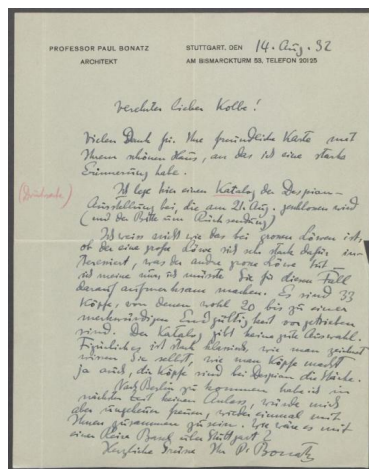 PROFESSOR PAUL BONATZ
ARCHITEKT
STUTTGART, DEN 14. Aug. 32
AM BISMARCKTURM 53, TELEFON 20125
Verehrter lieber Kolbe!
Vielen Dank für Ihre freundliche Karte mit
Ihrem schönen Haus, an das ich eine starke
Erinnerung habe.
(Drucksache)
Ich lege hier einen Katalog der Despiau-
Ausstellung bei, die am 21. Aug. geschlossen wird
(mit der Bitte um Rücksendung)
Ich weiss nicht wie das bei grossen Löwen ist,
ob der eine grosse Löwe sich stark dafür in-
teressiert, was der andre grosse Löwe tut
ich meine nur, ich müsste Sie für diesen Fall
darauf aufmerksam machen. Es sind 33
Köpfe, von denen wohl 20 bis zu einer
merkwürdigen Endgültigkeit vorgetrieben
sind. Der Katalog gibt keine gute Auswahl.
Figürliches ist stark klassisch, wie man zeichnet
wissen Sie selbst, wie man Köpfe macht
ja auch, die Köpfe sind bei Despiau die Stärke.
Nach Berlin zu kommen habe ich in
nächster Zeit keinen Anlass, würde mich
aber ungeheuer freuen, wieder einmal mit
Ihnen zusammen zu sein. Wie wäre es mit
einer Reise Basel über Stuttgart?
Herzliche Grüsse Ihr P. Bonatz